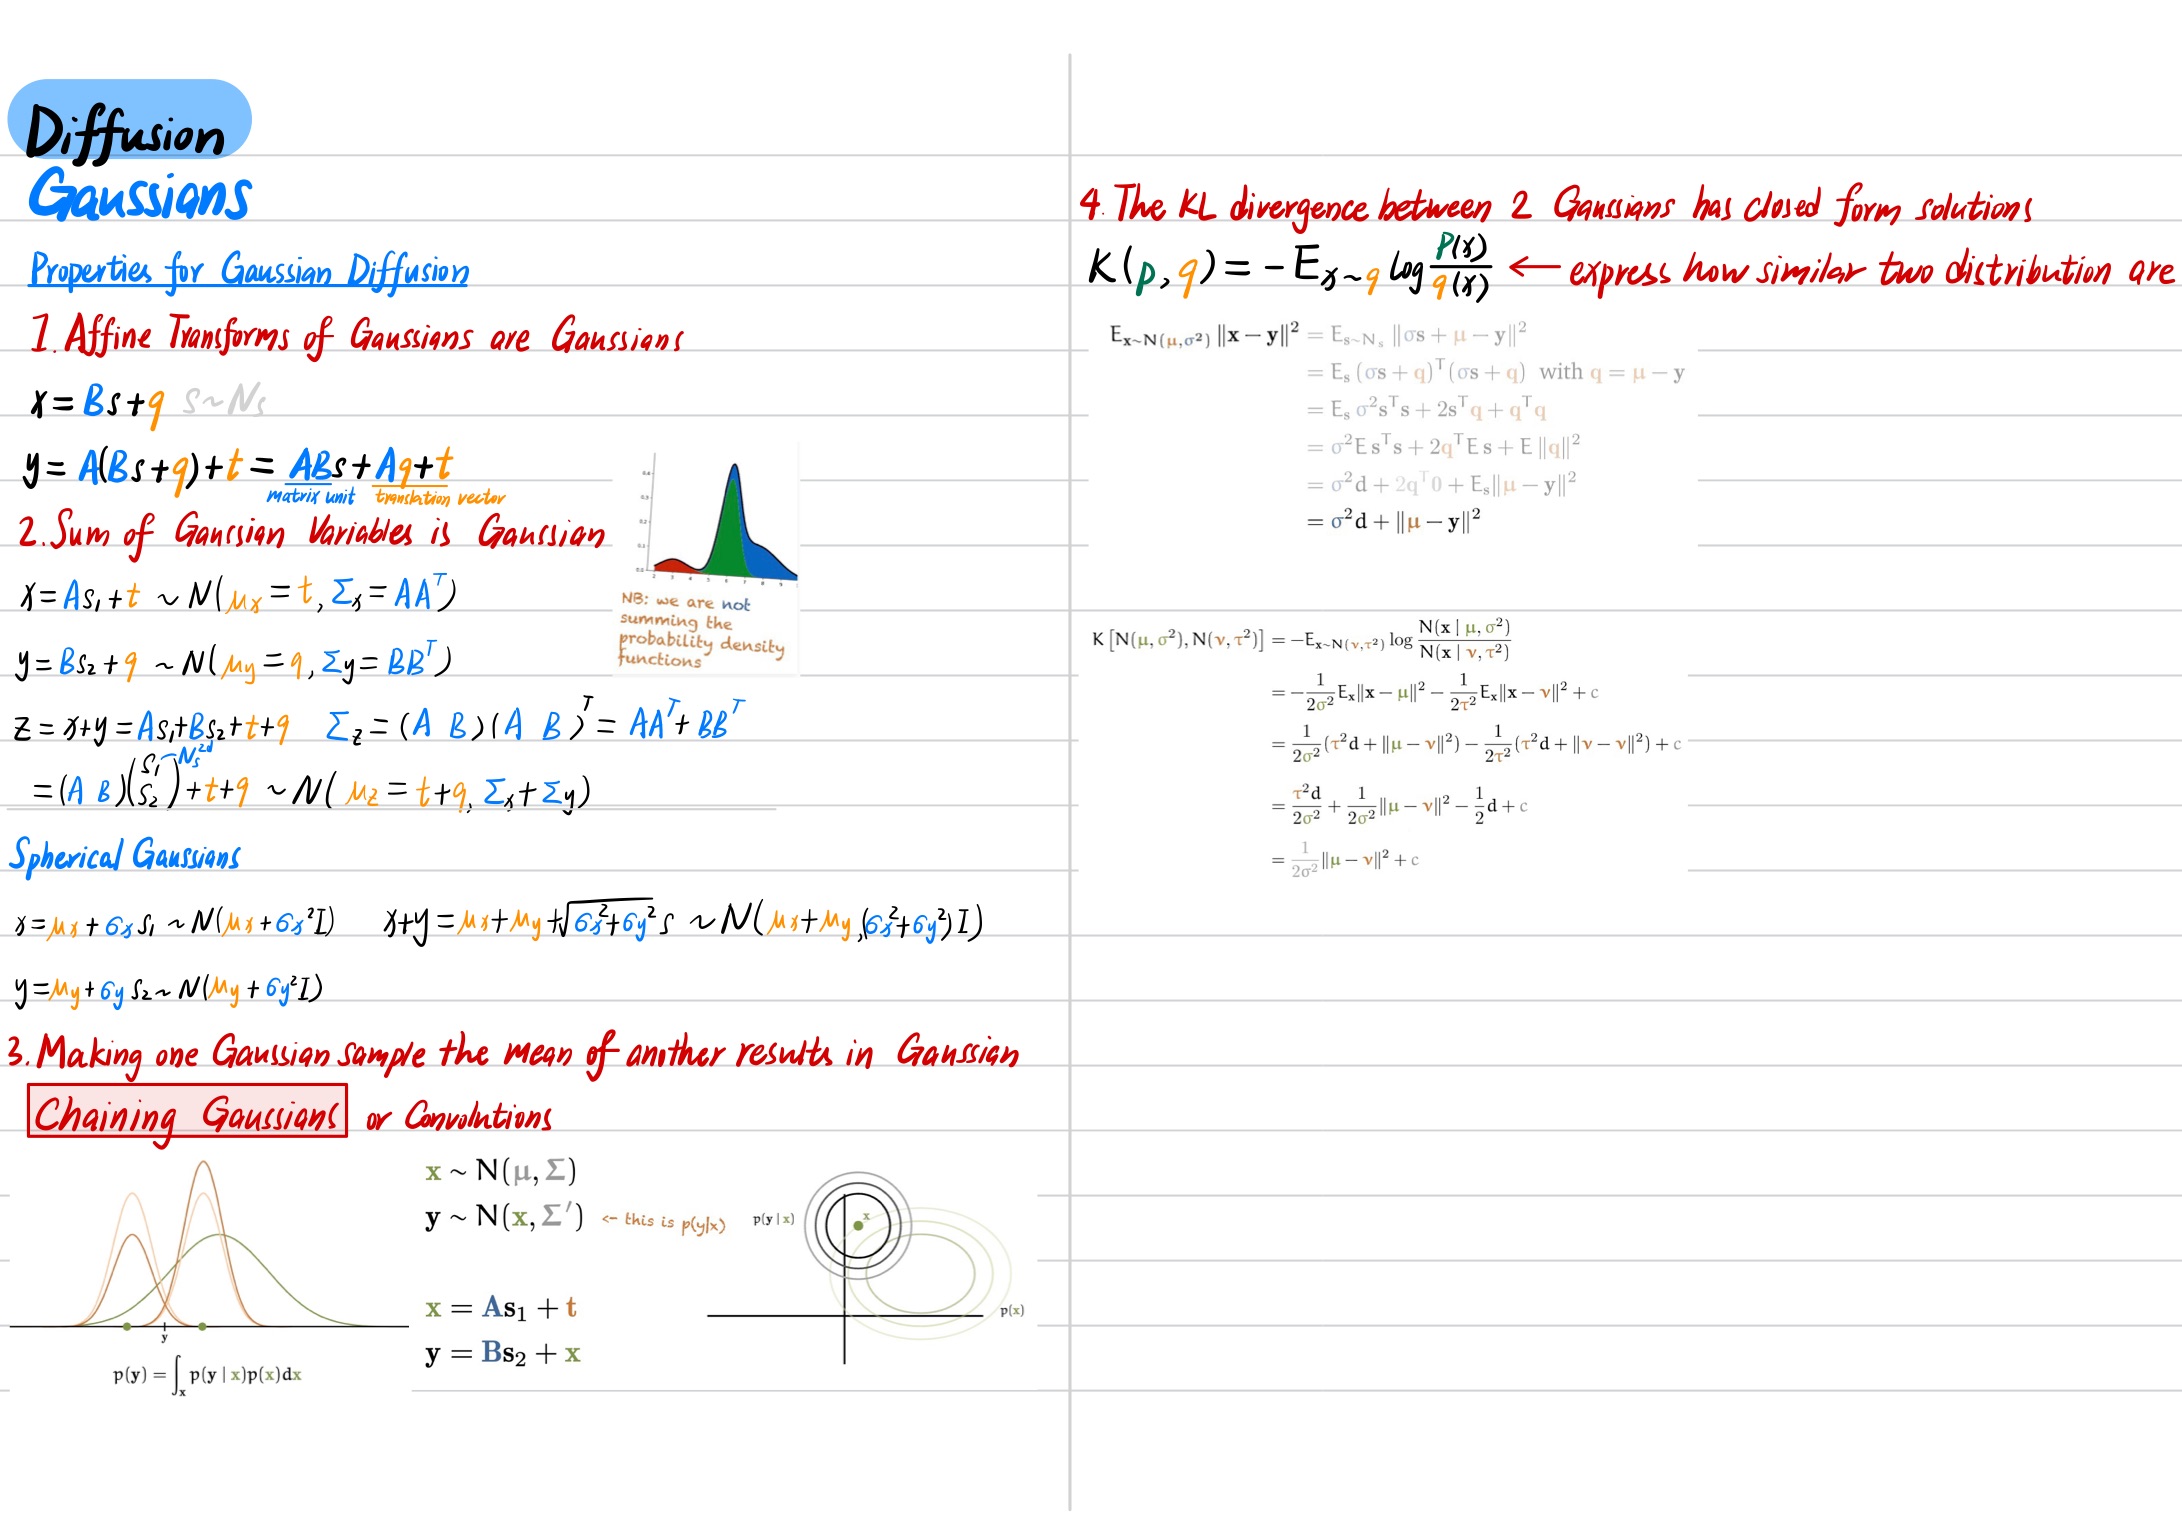 Diffusion
Gaussians
Properties for Gaussian Diffusion
1. Affine Transforms of Gaussians are Gaussians
x = Bs + q s ~ Ns
y = A(Bs + q) + t = ABs + Aq + t
matrix unit translation vector
2. Sum of Gaussian Variables is Gaussian
x = As₁ + t ~ N(μx = t, Σx = AAᵀ)
NB: we are not
summing the
probability density
functions
y = Bs₂ + q ~ N(μy = q, Σy = BBᵀ)
z = x+y = As₁+Bs₂+t+q Σz = (A B)(A B)ᵀ = AAᵀ + BBᵀ
= (A B)(s₁ s₂) + t+q ~ N(μz = t+q, Σx+Σy)
~Ns²ᵈ
Spherical Gaussians
x = μx + σx s₁ ~ N(μx + σx²I) x+y = μx+μy+√(σx²+σy²) s ~ N(μx+μy, (σx²+σy²)I)
y = μy + σy s₂ ~ N(μy + σy²I)
3. Making one Gaussian sample the mean of another results in Gaussian
Chaining Gaussians or Convolutions
x ~ N(μ, Σ)
y ~ N(x, Σ′) <- this is p(y|x)
x = As₁ + t
y = Bs₂ + x
y
p(y) = ∫ₓ p(y | x)p(x)dx
p(y | x)
x
p(x)
4. The KL divergence between 2 Gaussians has closed form solutions
K(p, q) = - E x~q log p(x)/q(x) ← express how similar two distribution are
E x∼N(μ,σ²) ||x − y||² = E s∼Ns ||σs + μ − y||²
= Es (σs + q)ᵀ(σs + q) with q = μ − y
= Es σ²sᵀs + 2sᵀq + qᵀq
= σ²E sᵀs + 2qᵀE s + E ||q||²
= σ²d + 2qᵀ0 + Es||μ − y||²
= σ²d + ||μ − y||²
K [N(μ, σ²), N(ν, τ²)] = −E x∼N(ν,τ²) log N(x | μ, σ²)/N(x | ν, τ²)
= − 1/2σ² Ex||x − μ||² − 1/2τ² Ex||x − ν||² + c
= 1/2σ² (τ²d + ||μ − ν||²) − 1/2τ² (τ²d + ||ν − ν||²) + c
= τ²d/2σ² + 1/2σ² ||μ − ν||² − 1/2 d + c
= 1/2σ² ||μ − ν||² + c